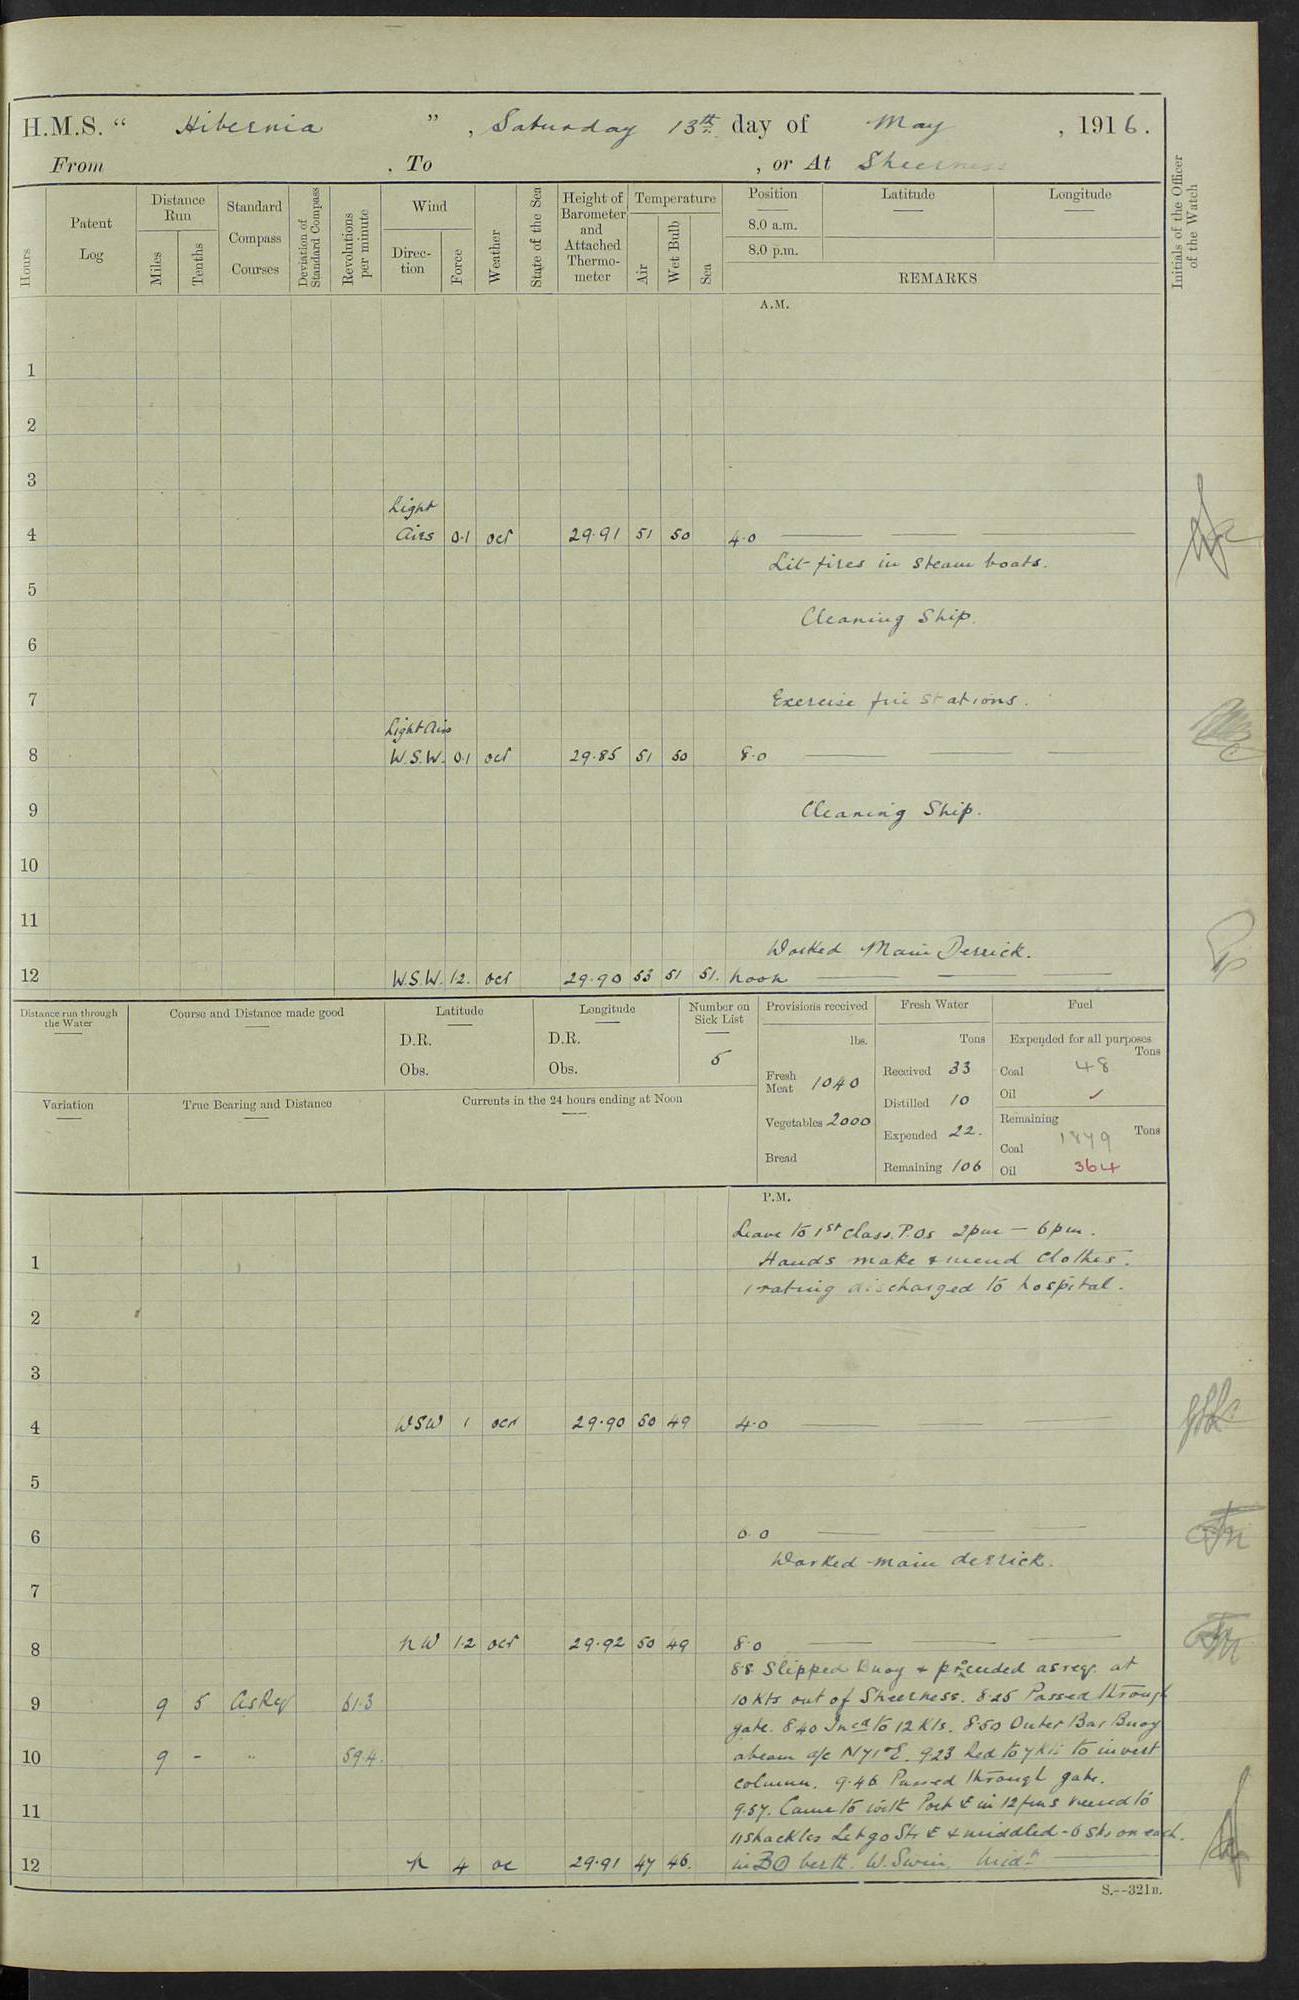 H.M.S. “ Hibernia ” , Saturday 13th day of May , 1916.
From . To , or At Sheerness
Hours
Patent Log
Distance Run
Miles
Tenths
Standard Compass Courses
Deviation of Standard Compass
Revolutions per minute
Wind
Direction
Force
Weather
State of the Sea
Height of Barometer and Attached Thermometer
Temperature
Air
Wet Bulb
Sea
Position
Latitude
Longitude
8.0 a.m.
8.0 p.m.
REMARKS
Initials of the Officer of the Watch
A.M.
1
2
3
Light
4 Airs 0.1 ocr 29.91 51 50 4.0
Lit fires in steam boats.
5
Cleaning Ship.
6
7 Exercise fire stations.
Light Airs
8 W.S.W. 0.1 ocr 29.85 51 50 8.0
9 Cleaning Ship.
10
11
Worked Main Derrick.
12 W.S.W. 1.2. ocr 29.90 53 51 51. noon
Distance run through the Water
Course and Distance made good
Latitude
D.R.
Obs.
Longitude
D.R.
Obs.
Number on Sick List
5
Provisions received
lbs.
Fresh Meat 1040
Vegetables 2000
Bread
Fresh Water
Tons
Received 33
Distilled 10
Expended 22.
Remaining 106
Fuel
Expended for all purposes
Tons
Coal 48
Oil ✓
Remaining
Tons
Coal 1879
Oil 364
Variation
True Bearing and Distance
Currents in the 24 hours ending at Noon
P.M.
Leave to 1st class P.Os 2pm — 6pm.
1 Hands make & mend clothes.
1 rating discharged to hospital.
2
3
4 WSW 1 ocr 29.90 50 49 4.0
5
6
Worked main derrick.
7
8 NW 1.2 ocr 29.92 50 49 8.0
8.8 Slipped Buoy & proceeded as req. at
9 9 5 As Req 61.3 10 Kts out of Sheerness. 8.25 Passed through
gate. 8.40 Incd to 12 Kts. 8.50 Outer Bar Buoy
10 9 - " 59.4. abeam a/c N71°E. 9.23 Red to 7 Kts to invert
column. 9.46 Passed through gate.
11 9.57. Came to with Port in 12 fms veered to
11 shackles Let go St & middled - 6 shs on each.
12 N 4 oc 29.91 47 46. in berth. W. Swin. Midt
S.--321B.